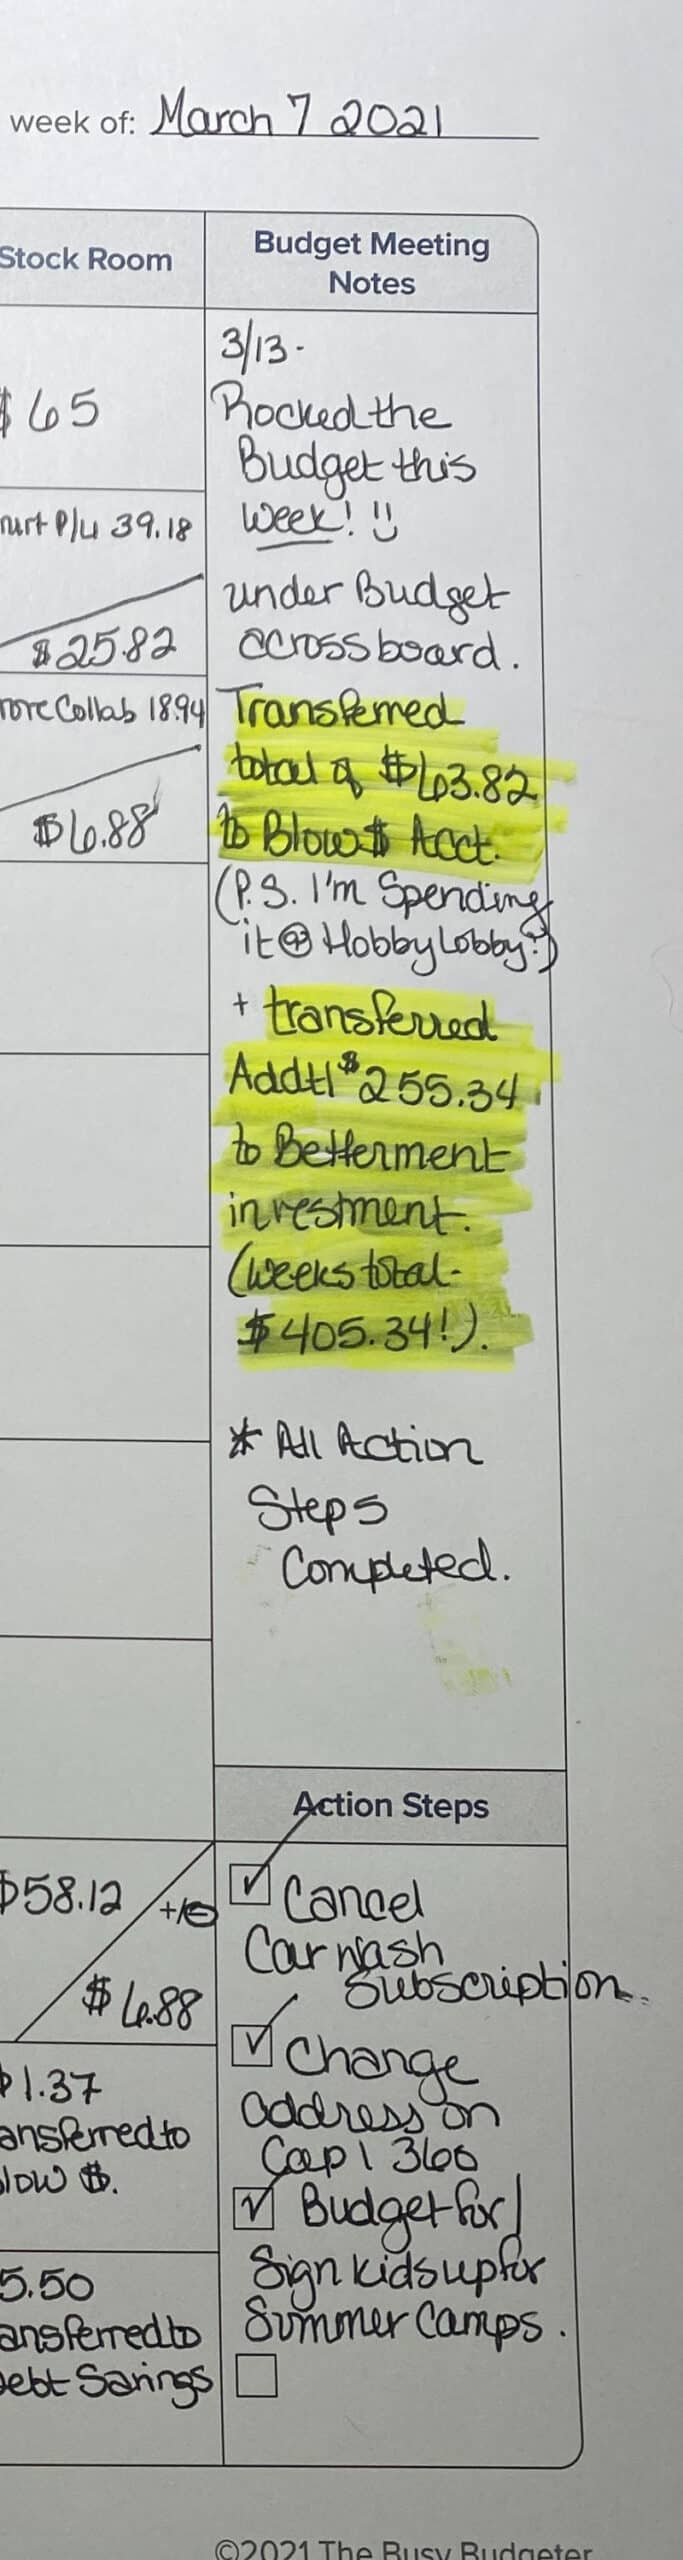 week of: March 7 2021
Stock Room
$65
P/U 39.18
$25.82
Collab 18.94
$6.88
$58.12 +/-
$6.88
$1.37
ansferred to
low $.
5.50
ansferred to
ebt Savings
Budget Meeting
Notes
3/13-
Rocked the
Budget this
week! :)
under Budget
across board.
Transferred
total of $63.82
to Blow $ Acct.
(P.S. I'm Spending
it @ Hobby Lobby!)
+ transferred
Addtl $255.34
to Betterment
investment.
(weeks total-
$405.34!).
* All Action
Steps
Completed.
Action Steps
Cancel
Car wash
Subscription.
Change
address on
Cap 1 360
Budget for/
Sign kids up for
Summer Camps.
©2021 The Busy Budgeter